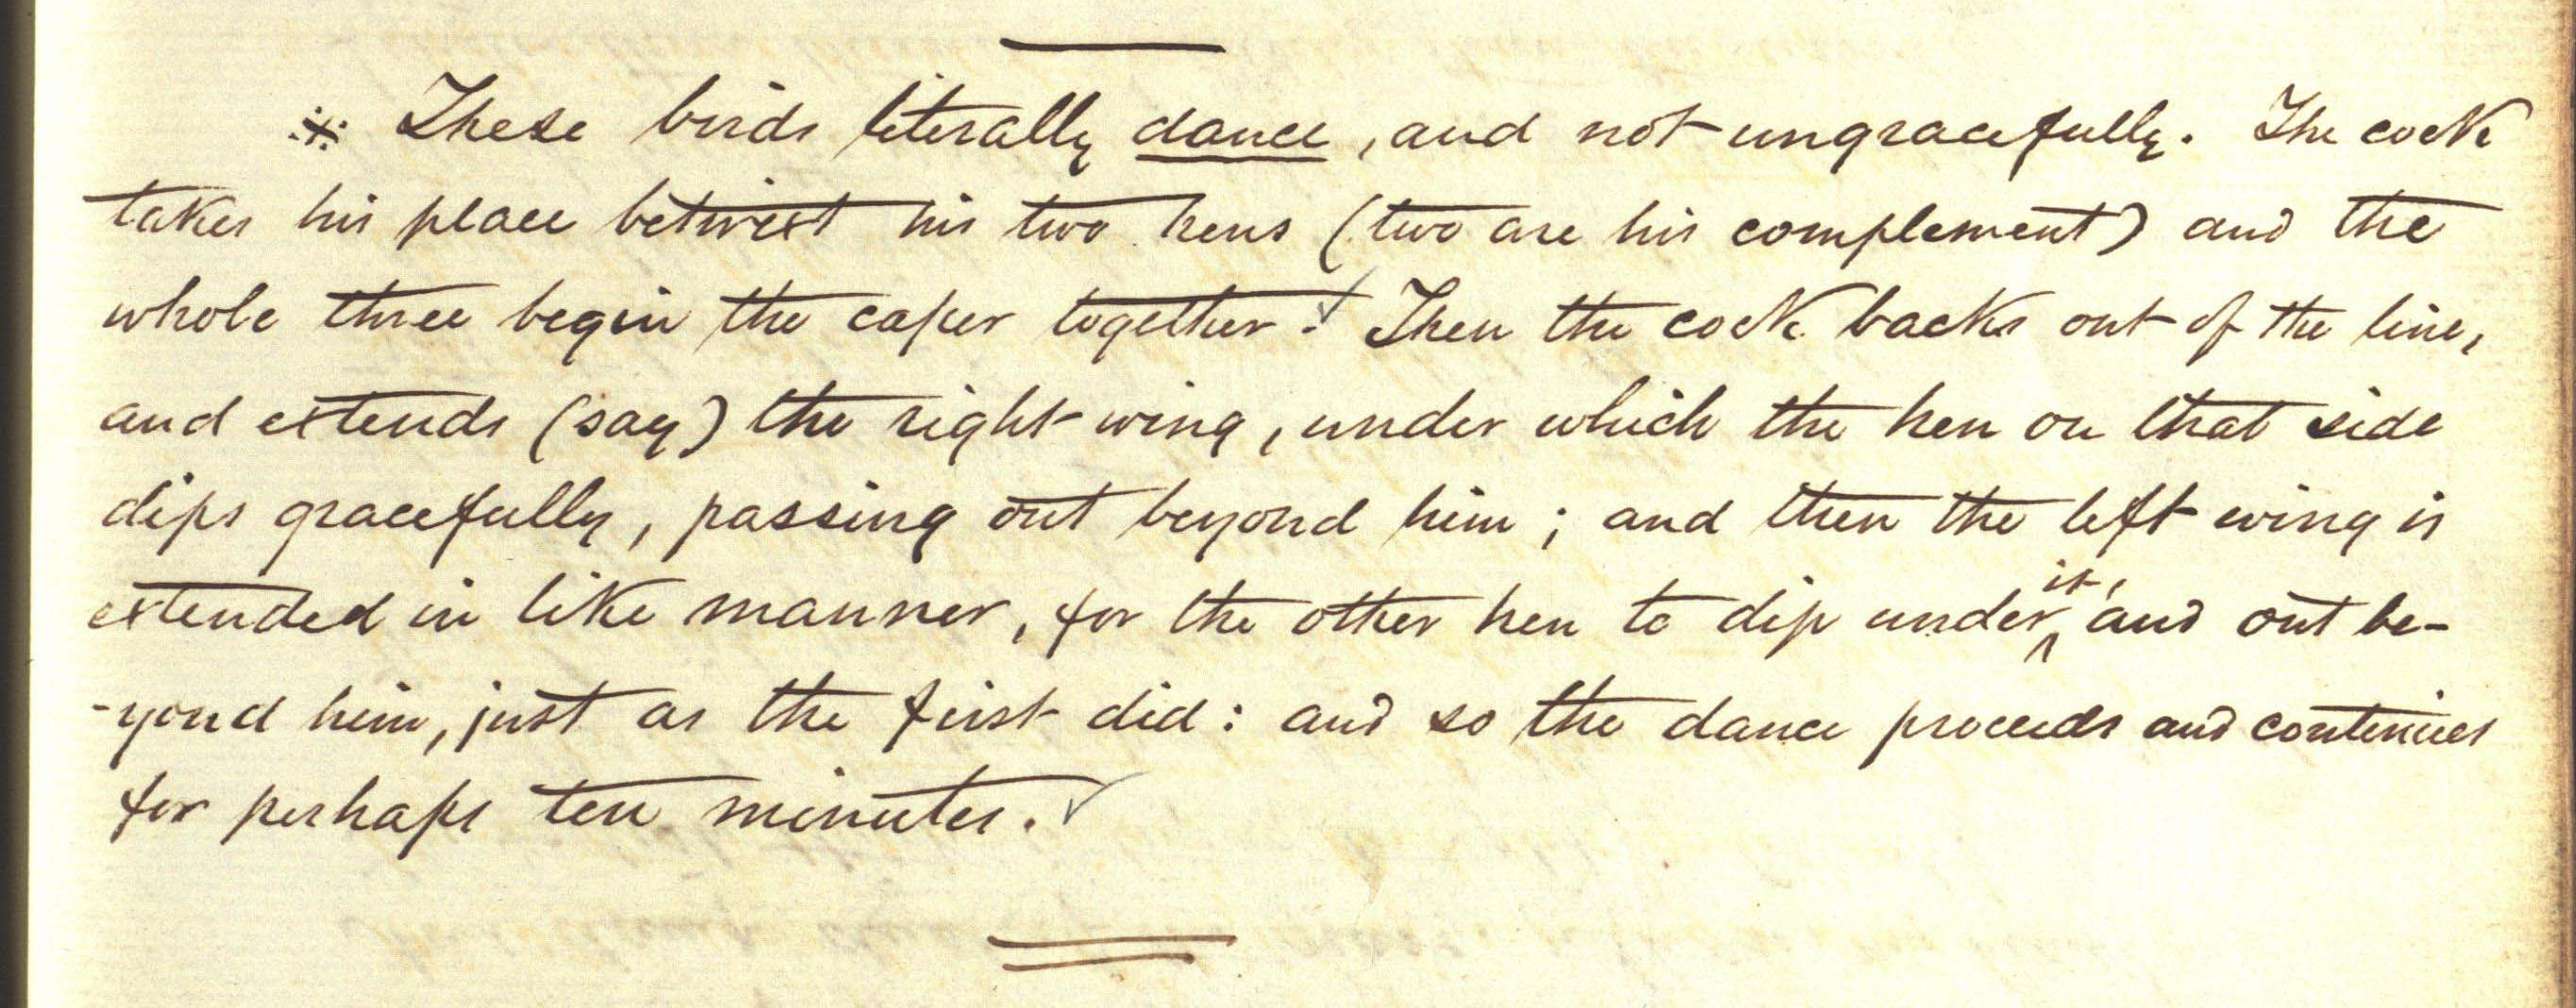 ※ These birds literally dance, and not ungracefully. The cock
takes his place betwixt his two hens (two are his complement) and the
whole three begin the caper together. Then the cock backs out of the line,
and extends (say) the right wing, under which the hen on that side
dips gracefully, passing out beyond him; and then the left wing is
extended in like manner, for the other hen to dip under it, and out be-
-yond him, just as the first did: and so the dance proceeds and continues
for perhaps ten minutes.